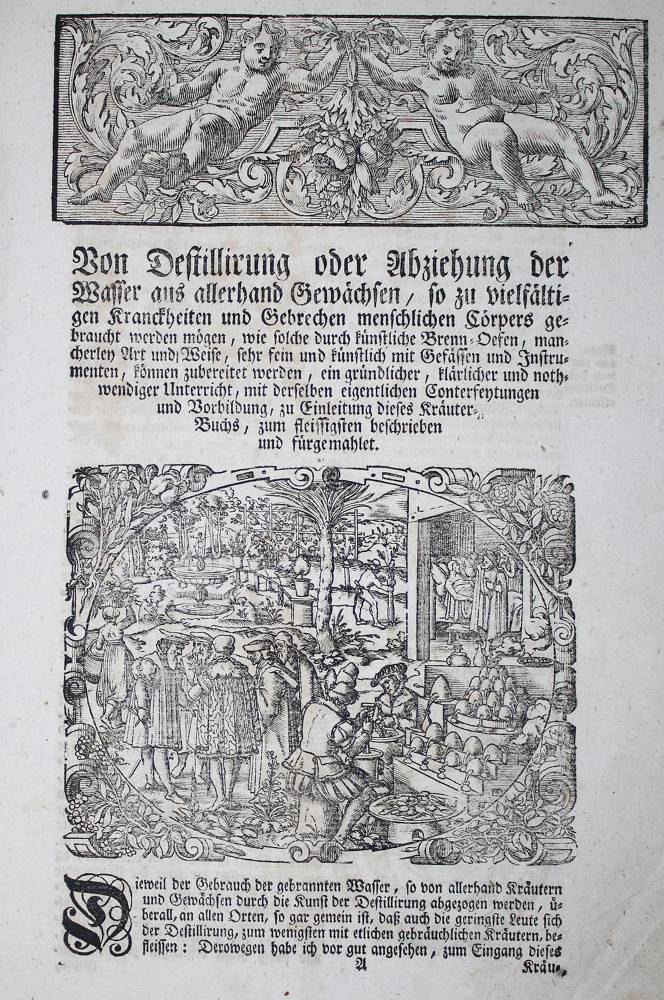 Von Destillirung oder Abziehung der
Wasser aus allerhand Gewächsen / so zu vielfälti-
gen Kranckheiten und Gebrechen menschlichen Cörpers ge-
braucht werden mögen, wie solche durch künstliche Brenn-Oefen, man-
cherley Art und Weise, sehr fein und künstlich mit Gefässen und Instru-
menten, können zubereitet werden, ein gründlicher, klärlicher und noth-
wendiger Unterricht, mit derselben eigentlichen Conterfeytungen
und Vorbildung, zu Einleitung dieses Kräuter-
Buchs, zum fleissigsten beschrieben
und fürgemahlet.
Dieweil der Gebrauch der gebrannten Wasser, so von allerhand Kräutern
und Gewächsen durch die Kunst der Destillirung abgezogen werden, ü-
berall, an allen Orten, so gar gemein ist, daß auch die geringste Leute sich
der Destillirung, zum wenigsten mit etlichen gebräuchlichen Kräutern, be-
fleissen: Derowegen habe ich vor gut angesehen, zum Eingang dieses
A
Kräu-